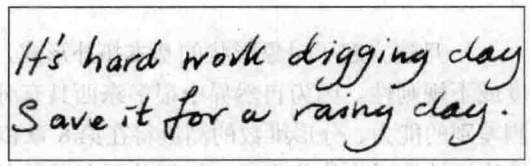 It's hard work digging clay
Save it for a rainy day.